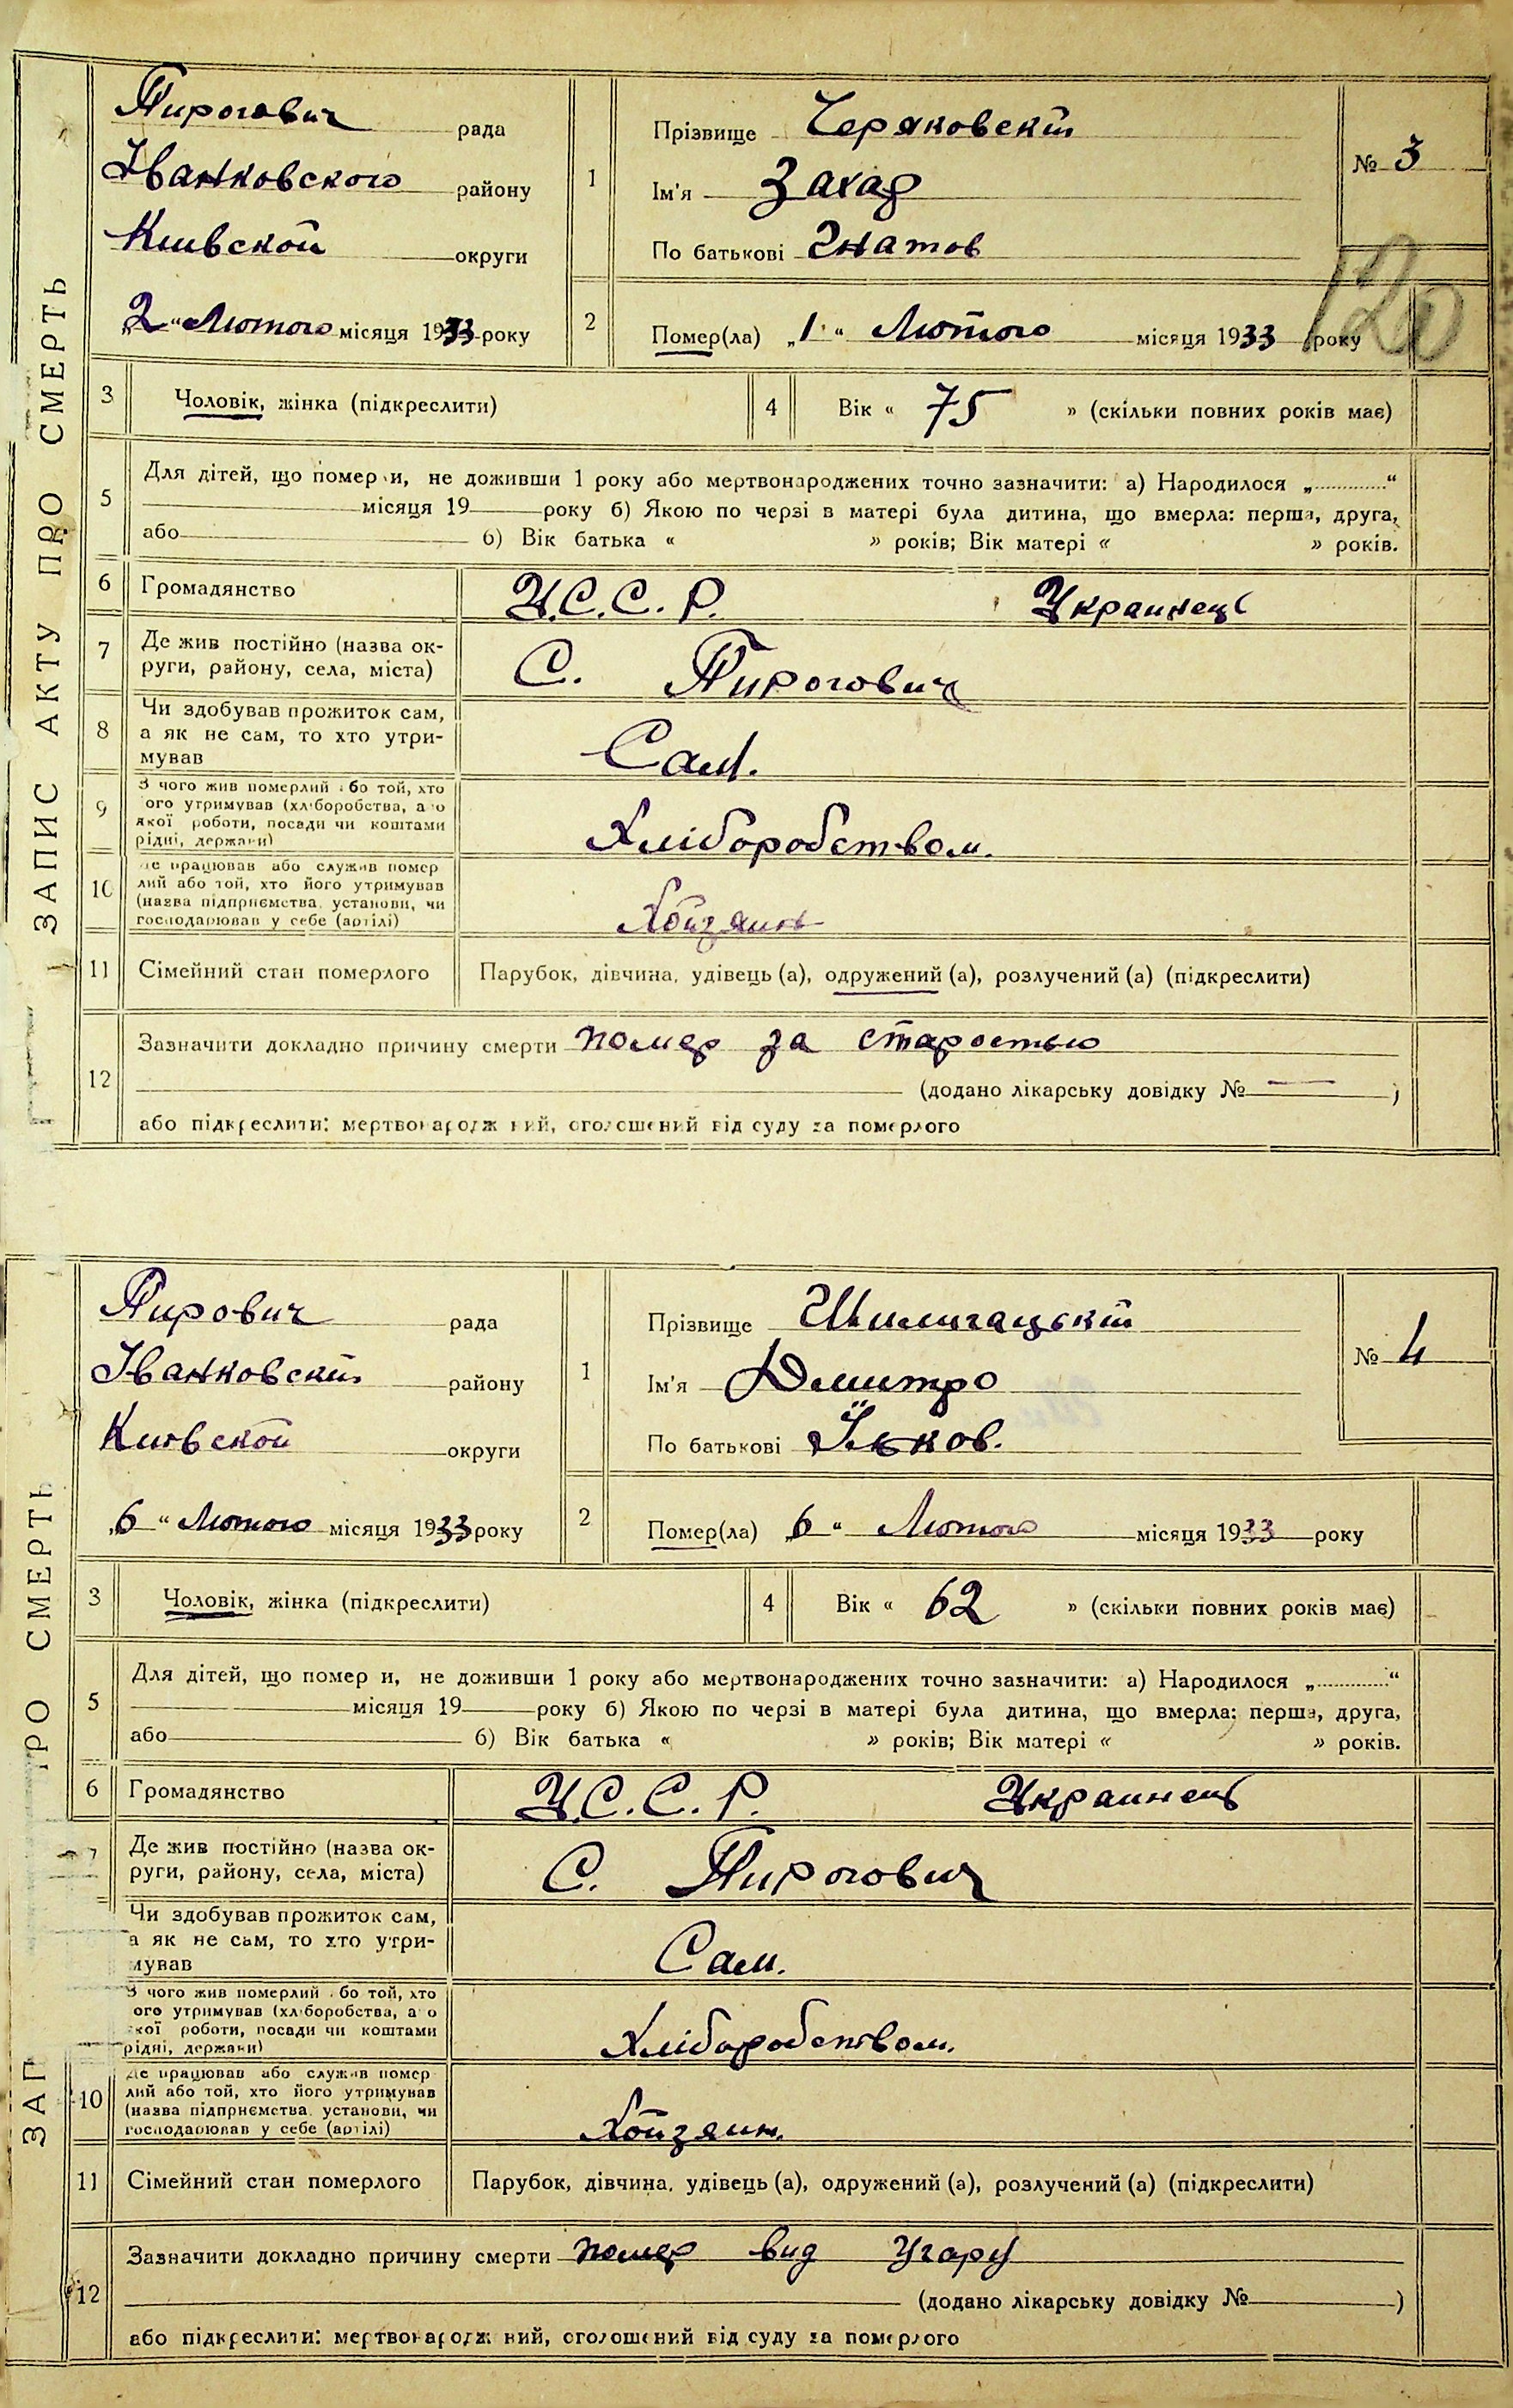 ЗАПИС АКТУ ПРО СМЕРТЬ
Пирогович рада
Іванковского району
Київской округи
„2“ Лютого місяця 1933 року
1
Прізвище Черяковскій
Ім'я Захар
По батькові Гнатов
№ 3
120
2
Помер(ла) „1“ Лютого місяця 1933 року
3 Чоловік, жінка (підкреслити) 4 Вік « 75 » (скільки повних років має)
5 Для дітей, що помер и, не доживши 1 року або мертвонароджених точно зазначити: а) Народилося „............“
місяця 19 року б) Якою по черзі в матері була дитина, що вмерла: перша, друга,
або б) Вік батька « » років; Вік матері « » років.
6 Громадянство У.С.С.Р. Украинець
7 Де жив постійно (назва ок-
руги, району, села, міста)
С. Пирогович
8 Чи здобував прожиток сам,
а як не сам, то хто утри-
мував
Сам.
9 З чого жив померлий або той, хто
ого утримував (хліборобства, або
якої роботи, посади чи коштами
рідні, держави)
Хліборобством.
10 Де працював або служив помер
лий або той, хто його утримував
(назва підприємства, установи, чи
господарював у себе (артілі)
Хойзяин
11 Сімейний стан померлого Парубок, дівчина, удівець (а), одружений (а), розлучений (а) (підкреслити)
12 Зазначити докладно причину смерти помер за старостью
(додано лікарську довідку № — )
або підкреслити: мертвонароджений, оголошений від суду за померлого
ЗАП РО СМЕРТЬ
Пирович рада
Іванковскій району
Київской округи
„6“ Лютого місяця 1933 року
1
Прізвище
Ім'я Дмитро
По батькові Ільков.
№ 4
2
Помер(ла) „6“ Лютого місяця 1933 року
3 Чоловік, жінка (підкреслити) 4 Вік « 62 » (скільки повних років має)
5 Для дітей, що помер и, не доживши 1 року або мертвонароджених точно зазначити: а) Народилося „............“
місяця 19 року б) Якою по черзі в матері була дитина, що вмерла: перша, друга,
або б) Вік батька « » років; Вік матері « » років.
6 Громадянство У.С.С.Р. Украинець
7 Де жив постійно (назва ок-
руги, району, села, міста)
С. Пирогович
Чи здобував прожиток сам,
а як не сам, то хто утри-
мував
Сам.
З чого жив померлий або той, хто
ого утримував (хліборобства, або
якої роботи, посади чи коштами
рідні, держави)
Хліборобством.
10 Де працював або служив помер
лий або той, хто його утримував
(назва підприємства, установи, чи
господарював у себе (артілі)
Хойзяин.
11 Сімейний стан померлого Парубок, дівчина, удівець (а), одружений (а), розлучений (а) (підкреслити)
12 Зазначити докладно причину смерти помер вид Угару
(додано лікарську довідку № )
або підкреслити: мертвонароджений, оголошений від суду за померлого